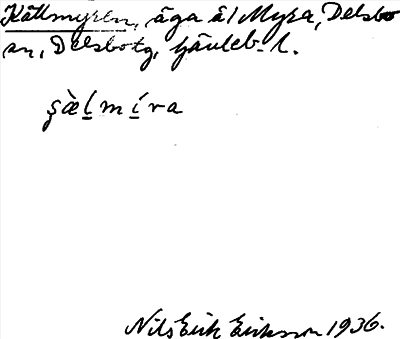 Källmyren, äga åt Myra, Delsbo
sn, Delsbotg, Gävleb. l.
s̀æḷmíra
Nils Erik Eriksson 1936.